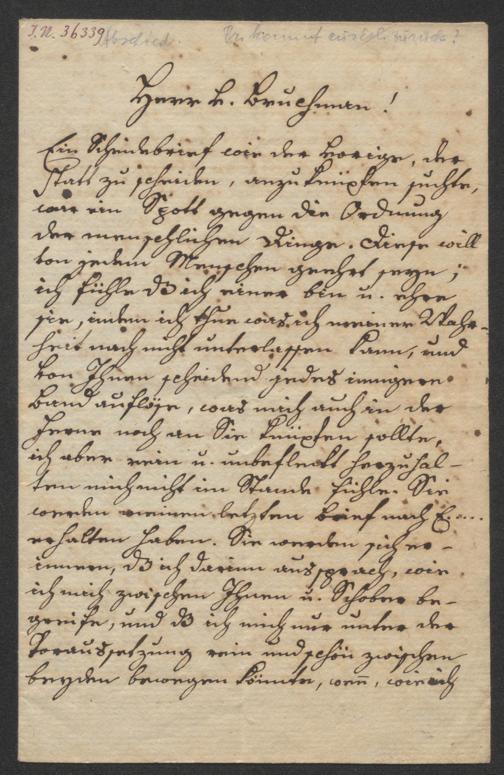 I.N. 36339 Abschied.
Herr v. Bruchman!
Ein Scheidebrief wie der vorige, der
statt zu scheiden, anzuknüpfen suchte,
war ein Spott gegen die Ordnung
der menschlichen Dinge. Diese will
von jedem Menschen geehrt seyn;
ich fühle dß ich einer bin u. ehre
sie, indem ich thue was ich meiner Wahr-
heit nach nicht unterlassen kann, und
von Ihnen scheidend jedes innigere
Band auflöse, was mich auch in der
Ferne noch an Sie knüpfen sollte,
ich aber rein u. unbefleckt herzuhal-
ten mich nicht im Stande fühle. Sie
werden meinen letzten Brief nach
erhalten haben. Sie werden sich er-
innern, dß ich darinn aussprach, wie
ich mich zwischen Ihnen u. Schober be-
greife, und dß ich mich nur unter der
Voraussetzung rein und schön zwischen
beyden bewegen könnte, wenn, wie ich